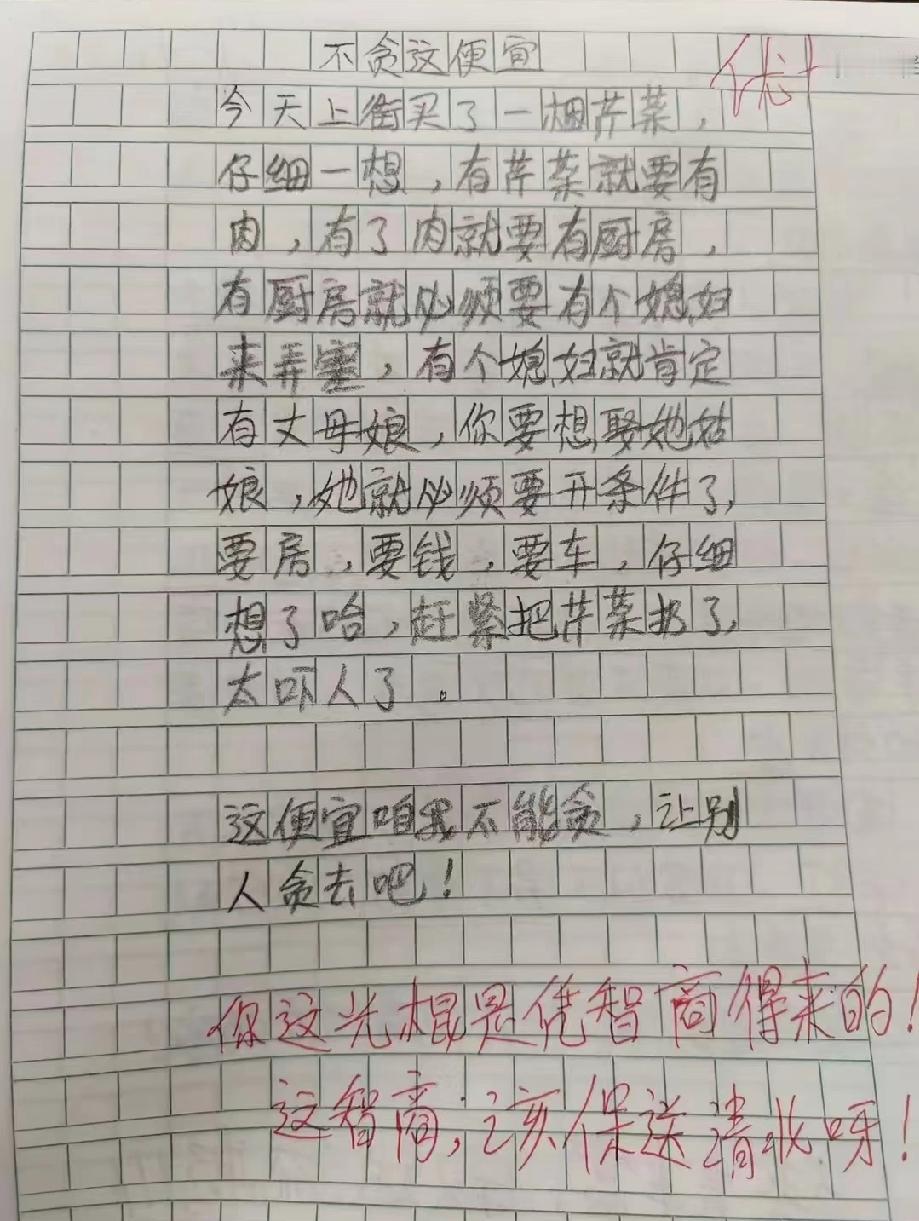 不贪这便宜
优+
今天上街买了一捆芹菜，
仔细一想，有芹菜就要有
肉，有了肉就要有厨房，
有厨房就必须要有个媳妇
来弄塞，有个媳妇就肯定
有丈母娘，你要想娶她姑
娘，她就必须要开条件了，
要房，要钱，要车，仔细
想了哈，赶紧把芹菜扔了，
太吓人了。
这便宜咱 不能贪，让别
人贪去吧！
你这光棍是凭智商得来的！
这智商，该保送清北呀！